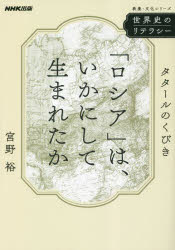 NHK出版
教養・文化シリーズ
世界史の
リテラシー
「ロシア」は、
いかにして
生まれたか
タタールのくびき
宮野 裕